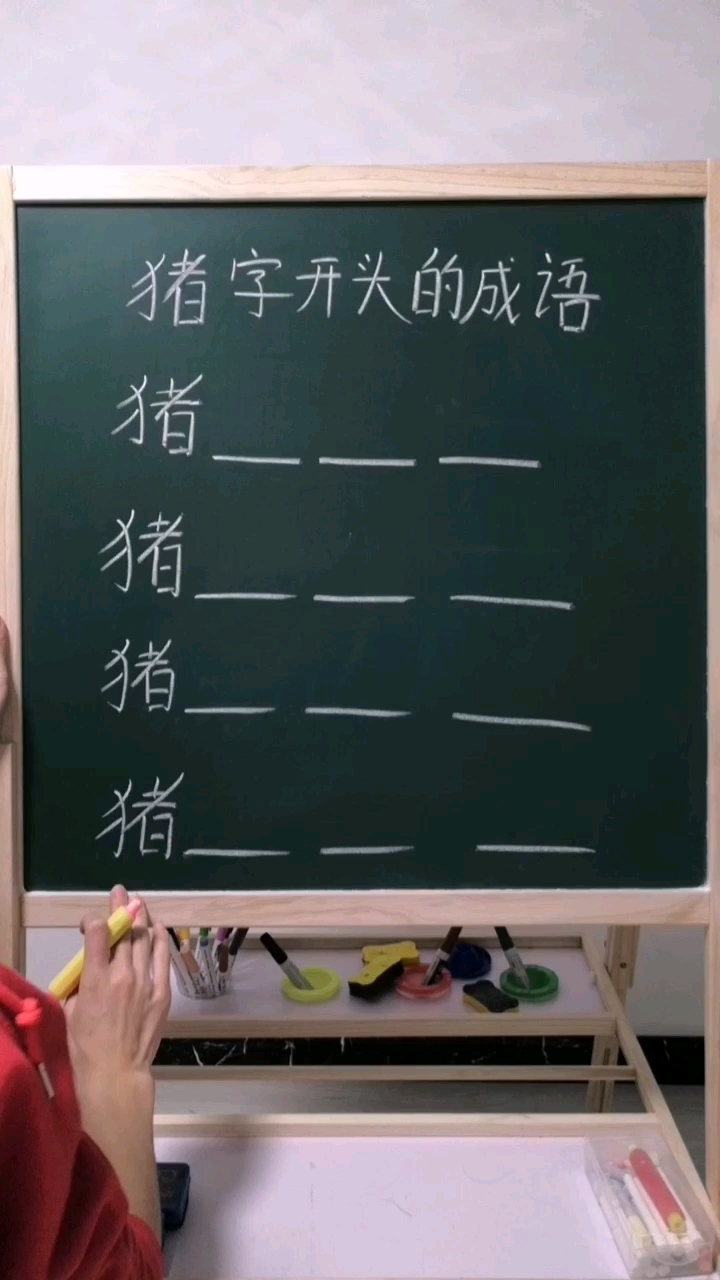 猪字开头的成语
猪
猪
猪
猪